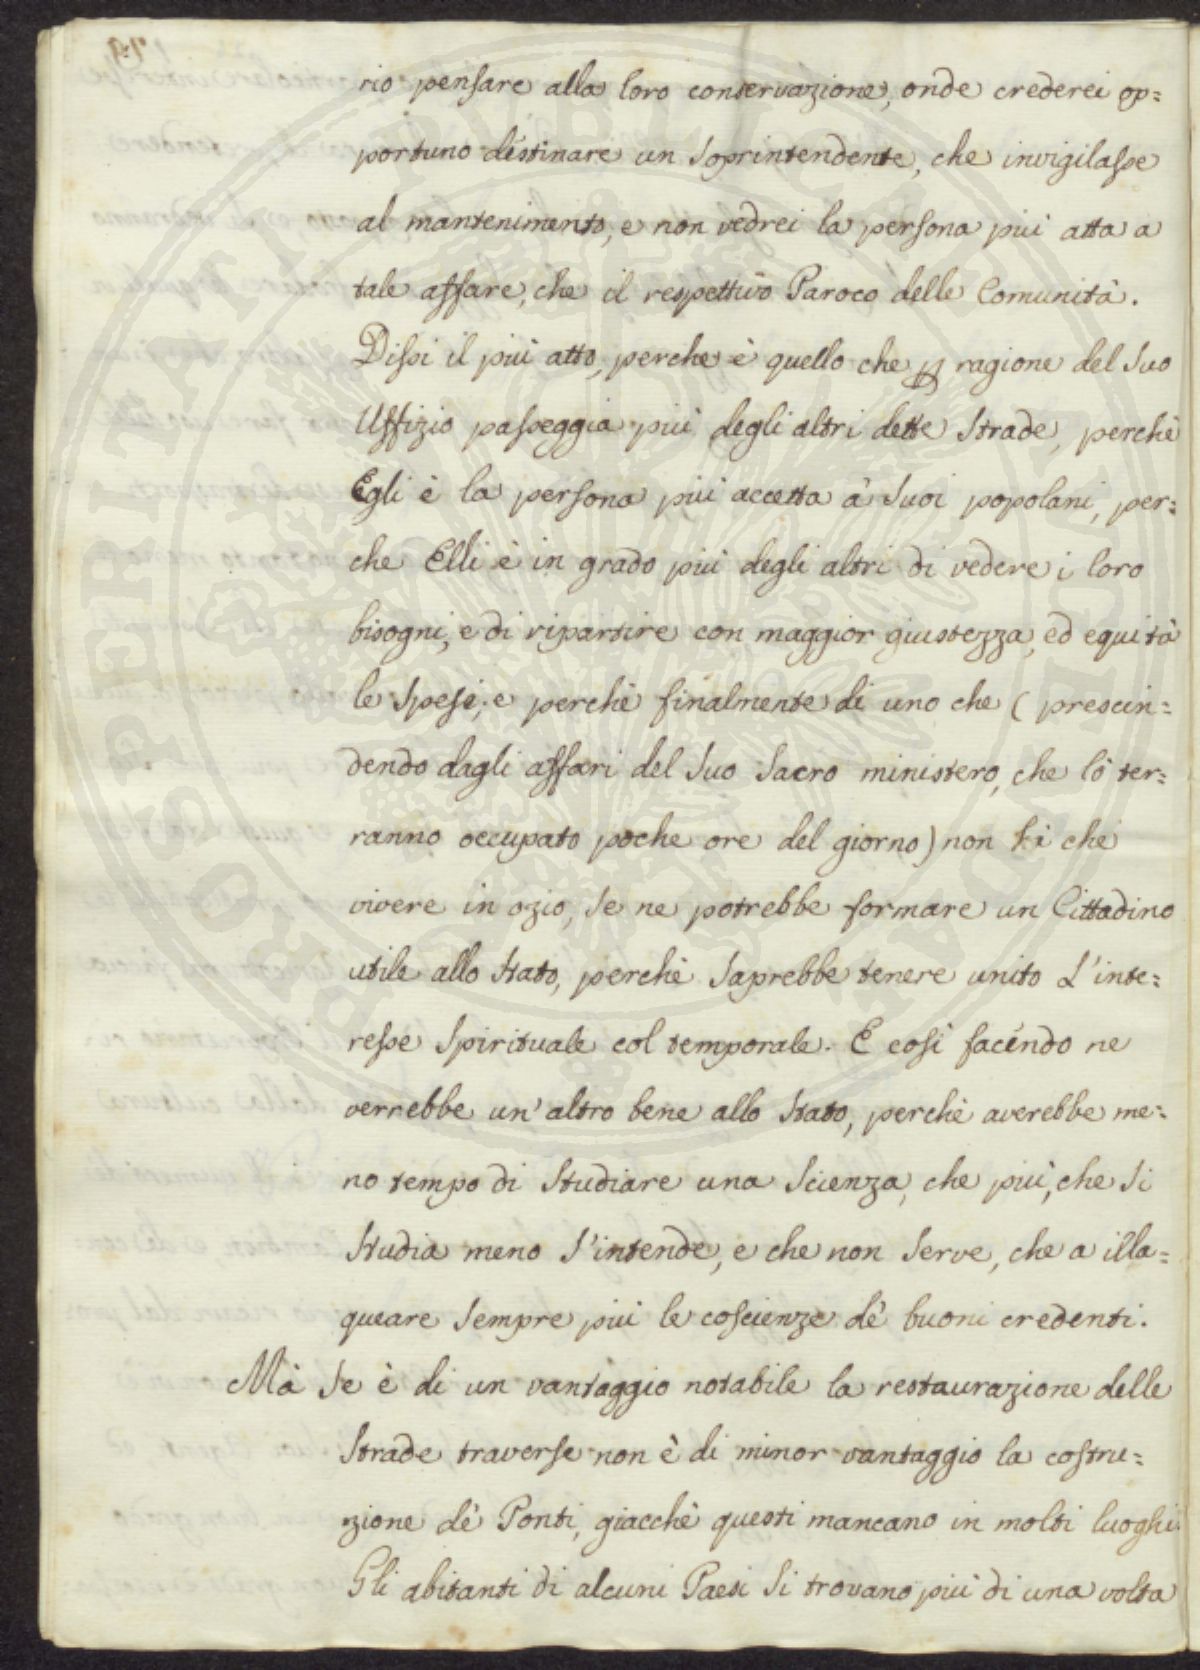 rio pensare alla loro conservazione, onde crederei op=
portuno destinare un Soprintendente, che invigilasse
al mantenimento, e non vedrei la persona più atta a
tale affare, che il respettivo Paroco delle Comunità.
Dissi il più atto, perche è quello che p ragione del Suo
Uffizio passeggia più degli altri dette Strade, perchè
Egli è la persona più accetta à Suoi popolani, per=
che Elli è in grado più degli altri di vedere i loro
bisogni, e di ripartire con maggior giustezza, ed equità
le Spese; e perchè finalmente di uno che ( prescin=
dendo dagli affari del Suo Sacro ministero, che lo ter=
ranno occupato poche ore del giorno) non fà che
vivere in ozio, Se ne potrebbe formare un Cittadino
utile allo Stato, perchè Saprebbe tenere unito L'inte=
resse Spirituale col temporale. E così facendo ne
verrebbe un' altro bene allo Stato, perchè averebbe me=
no tempo di Studiare una Scienza, che più, che Si
Studia meno S'intende, e che non Serve, che a illa=
queare Sempre più le coscienze dè buoni credenti.
Mà Se è di un vantaggio notabile la restaurazione delle
Strade traverse non è di minor vantaggio la costru=
zione dè Ponti, giacchè questi mancano in molti luoghi.
Gli abitanti di alcuni Paesi Si trovano più di una volta
PROSPERITATI PUBLICAE AUGENDAE